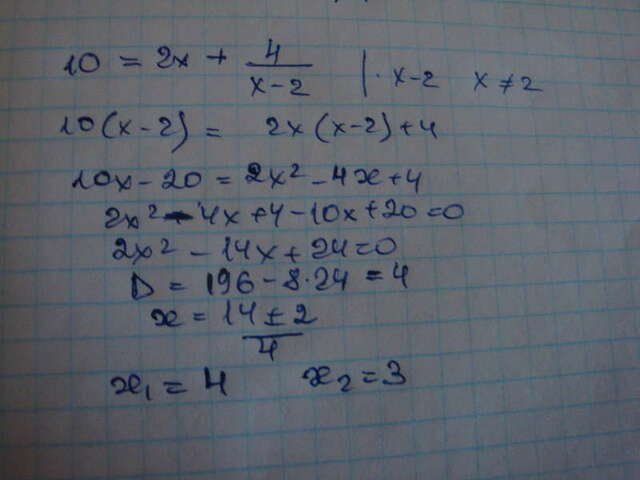 10 = 2x + 4/(x-2) | · x-2 x ≠ 2
10(x-2) = 2x(x-2)+4
10x - 20 = 2x² - 4x + 4
2x² - 4x + 4 - 10x + 20 = 0
2x² - 14x + 24 = 0
D = 196 - 8·24 = 4
x = (14 ± 2)/4
x₁ = 4 x₂ = 3